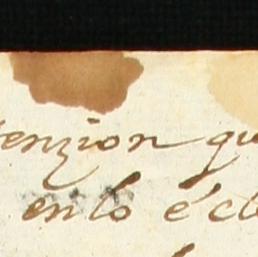 tenzion qu
en lo é cl